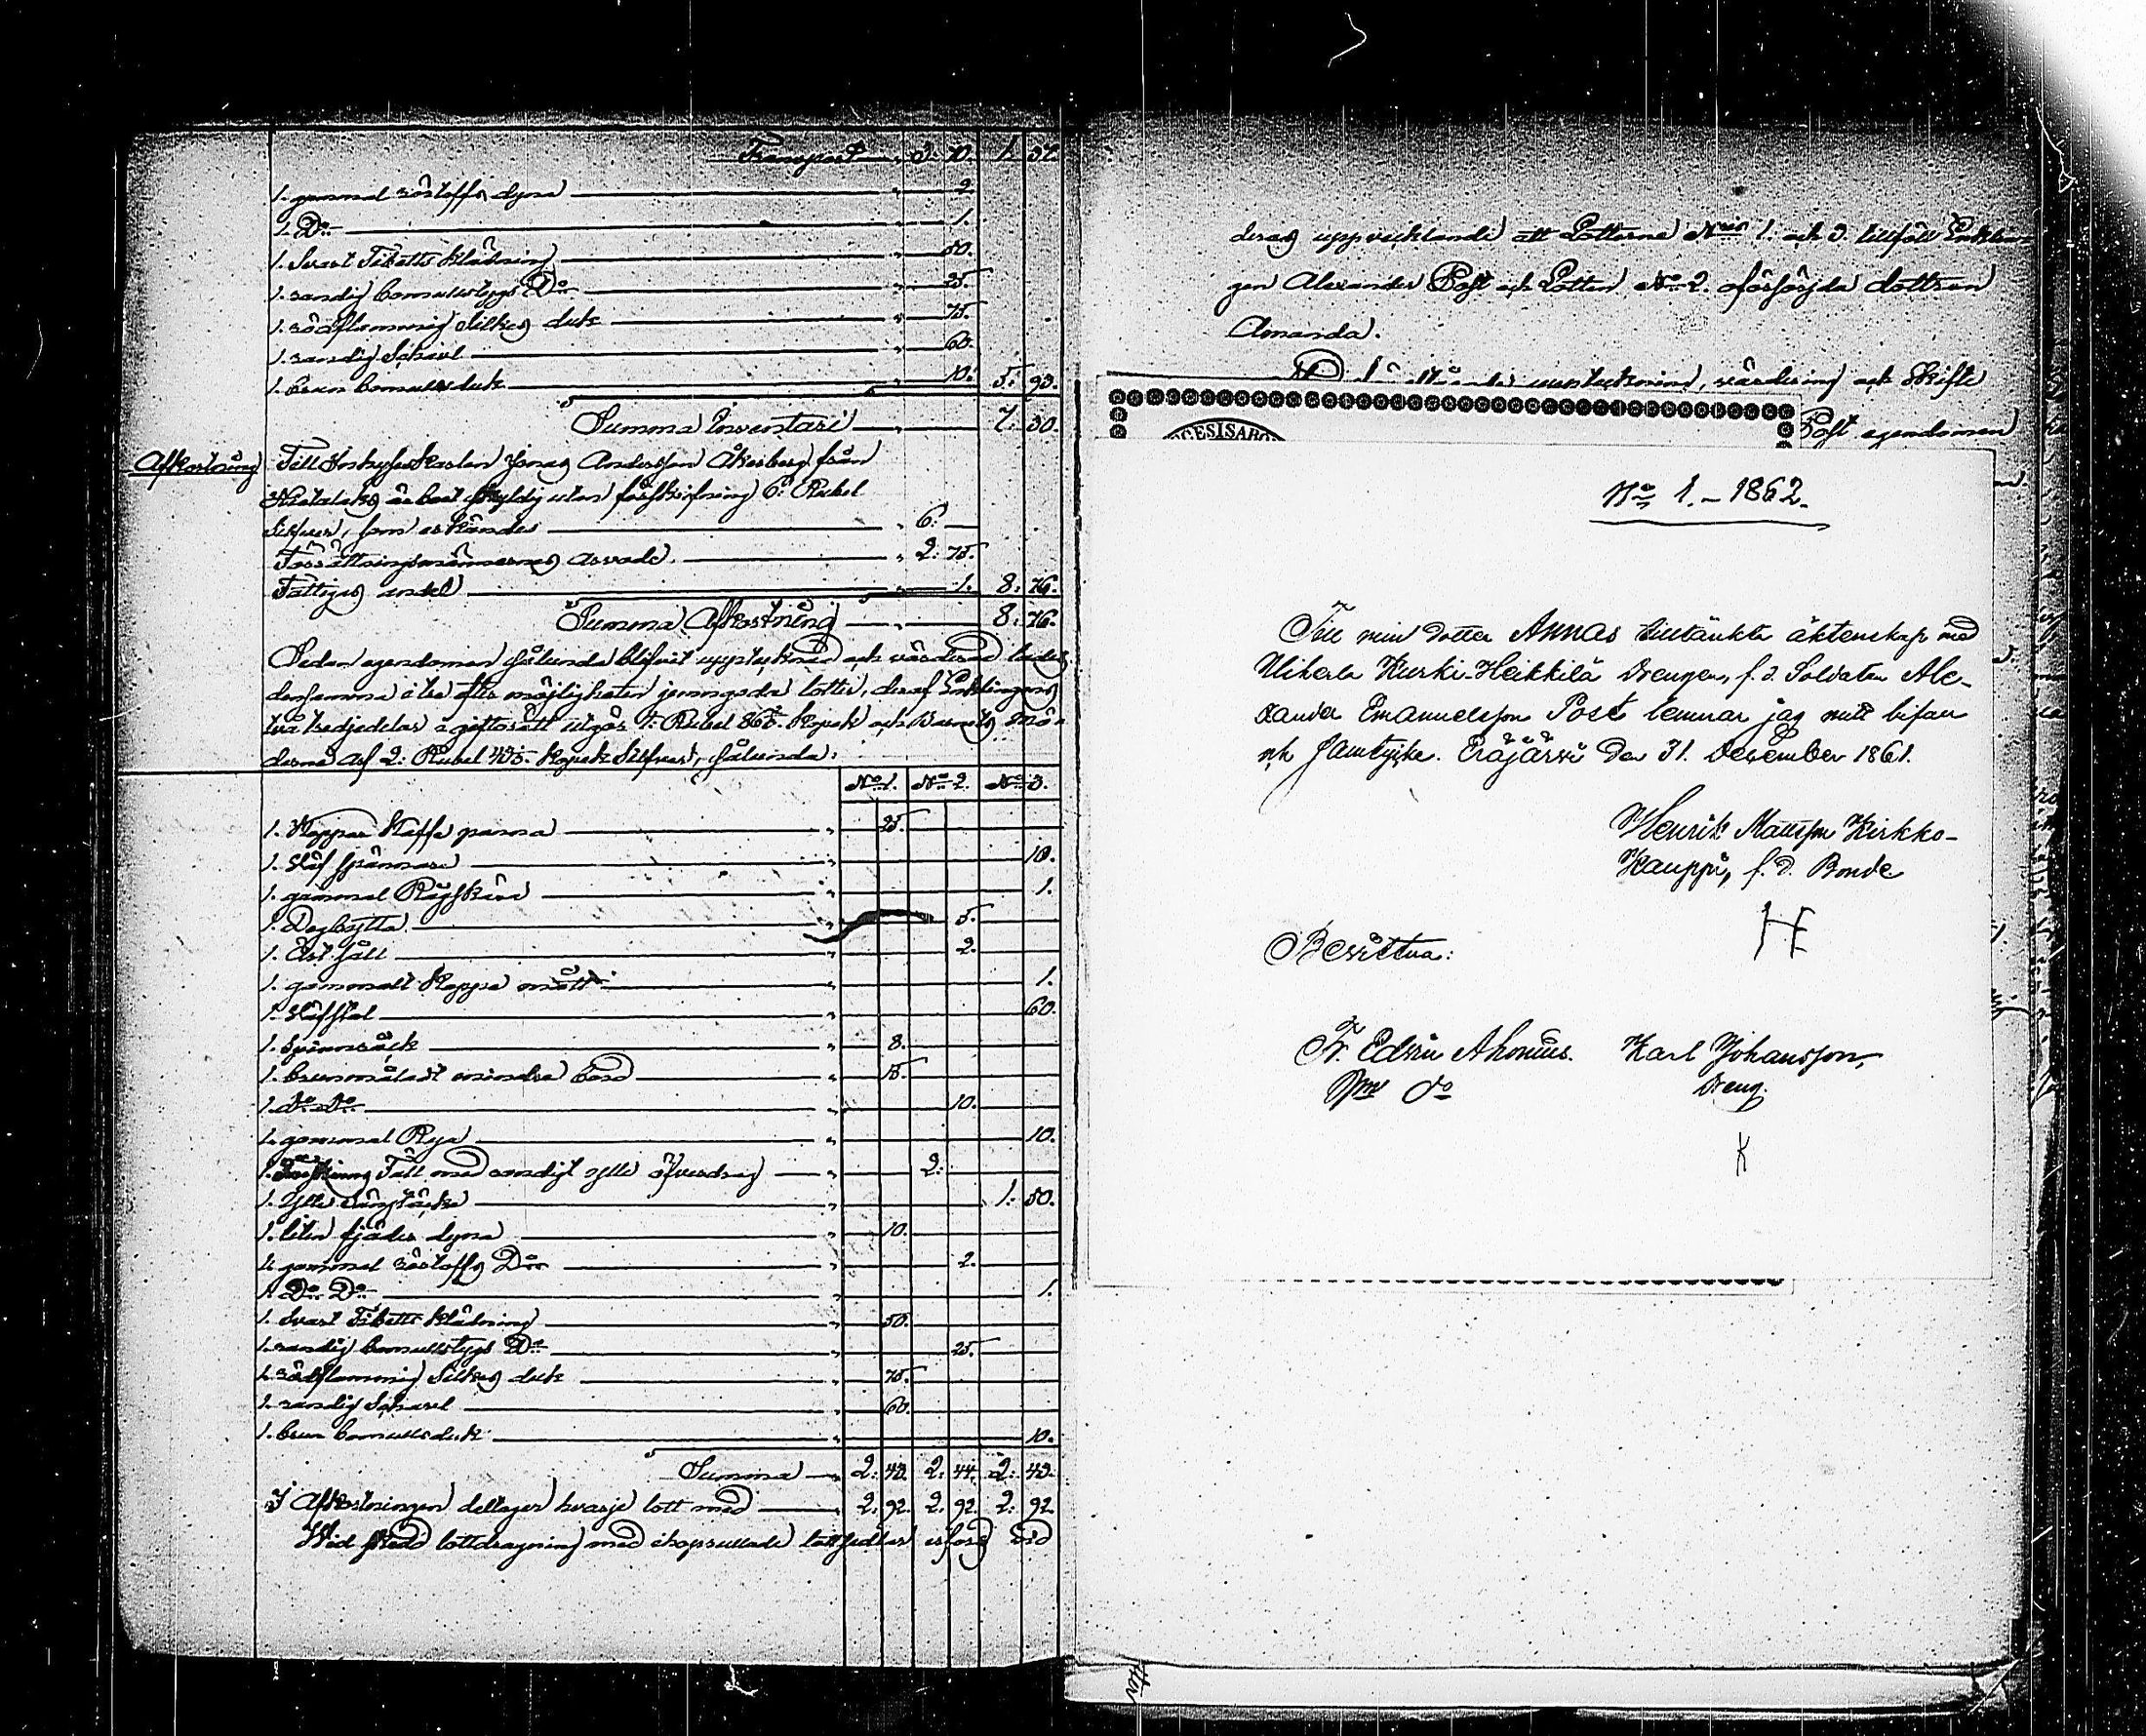 Transport 3. 70. 1. 57.
1. gammal rostoffs dyna 2
1. Do 1.
1. Svart Tibetts Klädning 50.
1. randig bomullstygs Do 25.
1. rödflammig Silkes duk 75.
1. randig Schavl 60.
1. brun bomullsduk 10. 5. 93.
Summa Inventarii 7. 50.
Afkortning Till Inhyses Karlen Jonas Andersson Åkerberg från
är boet skyldig utan förskrifning 6. Rubel
Silfver, som erkändes 6.
Förrättningsmännernes arvode 2. 75.
Fattiges andel 1. 8. 76.
Summa Afkortning 8. 76.
Sedan egendomen sålunda blifvit upptecknad och värderad
densamma i tre efter möjligheten jemngoda lotter, deraf Enklingens
två tredjedelar i giftorätt utgör Rubel Kopek och Barnets
derne af 2. Rubel Kopek Silfver, sålunda:
No 1. No 2. No 3.
1. Koppar Kaffe panna 25.
1. 10.
1. gammal 1.
1. Degbytta 5.
1. fält 2.
1. gammalt Kappe mått 1.
1. 60.
1. Spinnråck 8.
1. brunmåladt mindre bord 15.
1. Do Do 10.
1. gammal Rya 10.
1. Fäll med randigt ylle öfverdrag 2.
1. Ylle sängtäcke 1. 50.
1. liten fjäder dyna 10.
1. gammal rostoffs Do 2.
1. Do Do 1.
1. Svart Tibetts Klädning 50.
1. randig bomullstygs Do 25.
1. rödflammig Silkes duk 75.
1. randig Schavl 60.
1. brun bomullsduk 10.
Summa 2. 43. 2. 44. 2. 43.
I Afkortningen deltager hvarje lott med 2. 92. 2. 92. 2. 92.
Wid skedd lottdragning med ihoprullade lottsedlar
deras uppvecklande att Lotterne No 1. och 3. tillföll Enklin-
gen Alexander Post och Lotten No 2. oförsörjda dottren
Amanda.
uppteckning, värdering och skifte
Post egendomen
No 1. – 1862.
Till min Dotter Annas tilltänkta äktenskap med
Uiherla Kurki-Heikkilä Drengen, f. d. Soldaten Ale-
xander Emanuelsson Post lemnar jag mitt bifall
och samtycke. Eräjärvi Den 31. December 1861.
Henrik Mattson Kirkko-
Kauppi, f. d. Bonde
H
Bevittna:
Fr. Edvin Ahonius. Karl Johansson,
Dreng.
K